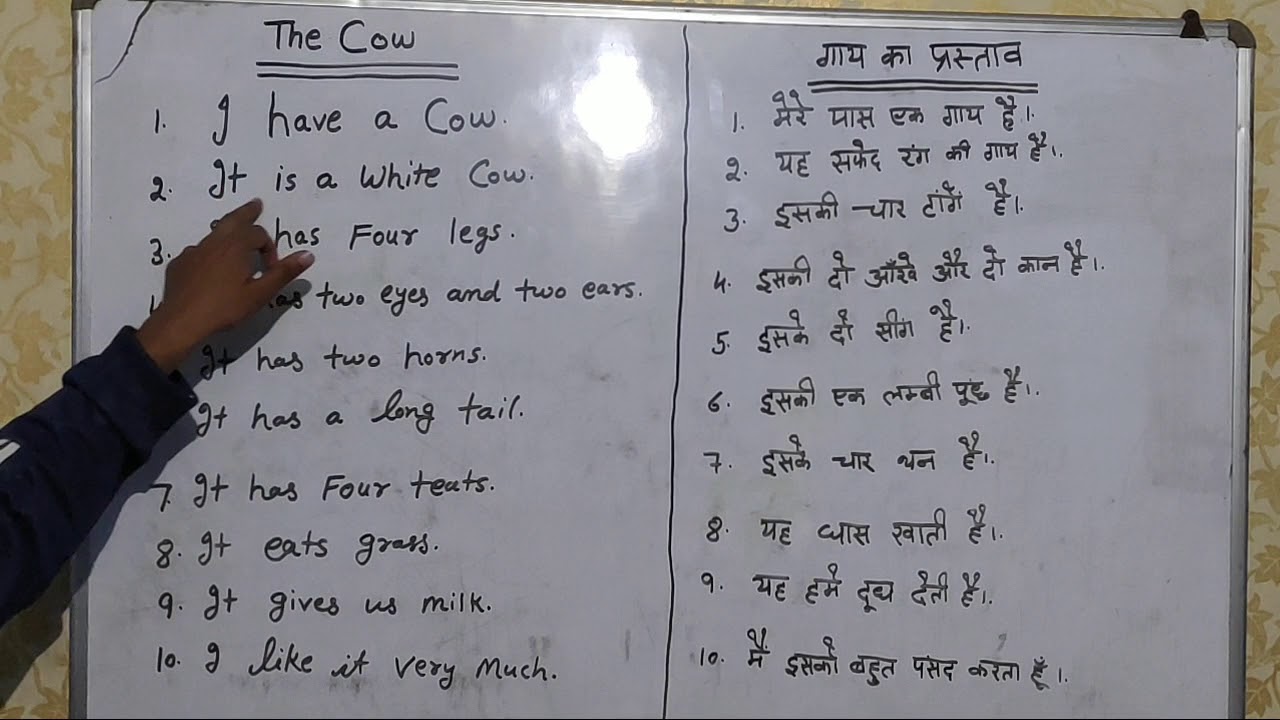 The Cow
1. I have a Cow.
2. It is a white Cow.
3. has Four legs.
has two eyes and two ears.
It has two horns.
It has a long tail.
7. It has Four teats.
8. It eats grass.
9. It gives us milk.
10. I like it very Much.
गाय का प्रस्ताव
1. मेरे पास एक गाय है।.
2. यह सफेद रंग की गाय है।.
3. इसकी चार टांगें है।.
4. इसकी दो आँखे और दो कान है।.
5. इसके दो सींग है।.
6. इसकी एक लम्बी पूंछ है।.
7. इसके चार थन है।.
8. यह घास खाती है।.
9. यह हमे दूध देती है।.
10. मैं इसको बहुत पसंद करता हूँ।.